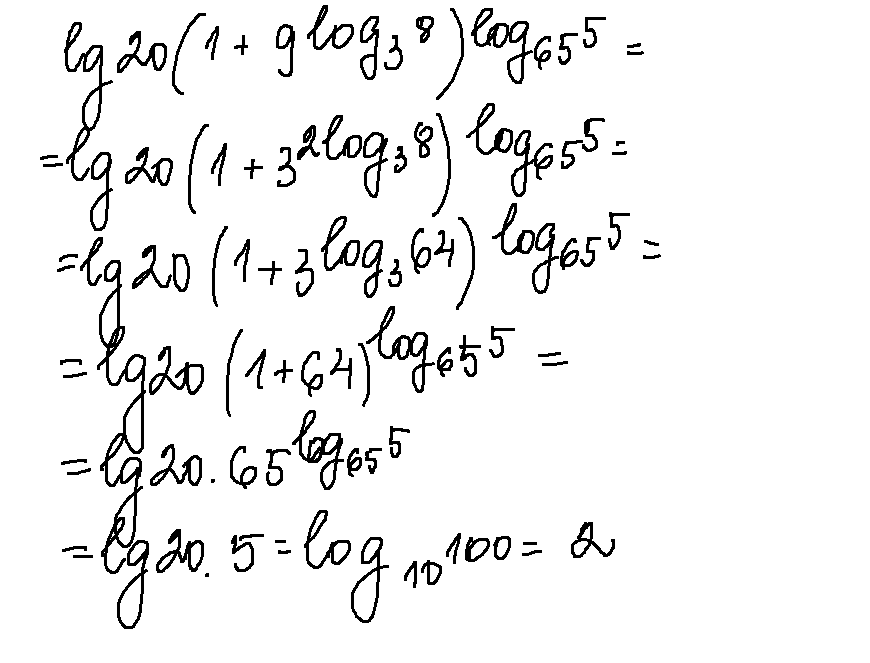 lg 20 (1 + 9^{log_3 8})^{log_{65} 5} =
= lg 20 (1 + 3^{2 log_3 8})^{log_{65} 5} =
= lg 20 (1 + 3^{log_3 64})^{log_{65} 5} =
= lg 20 (1 + 64)^{log_{65} 5} =
= lg 20 . 65^{log_{65} 5}
= lg 20 . 5 = log_{10} 100 = 2